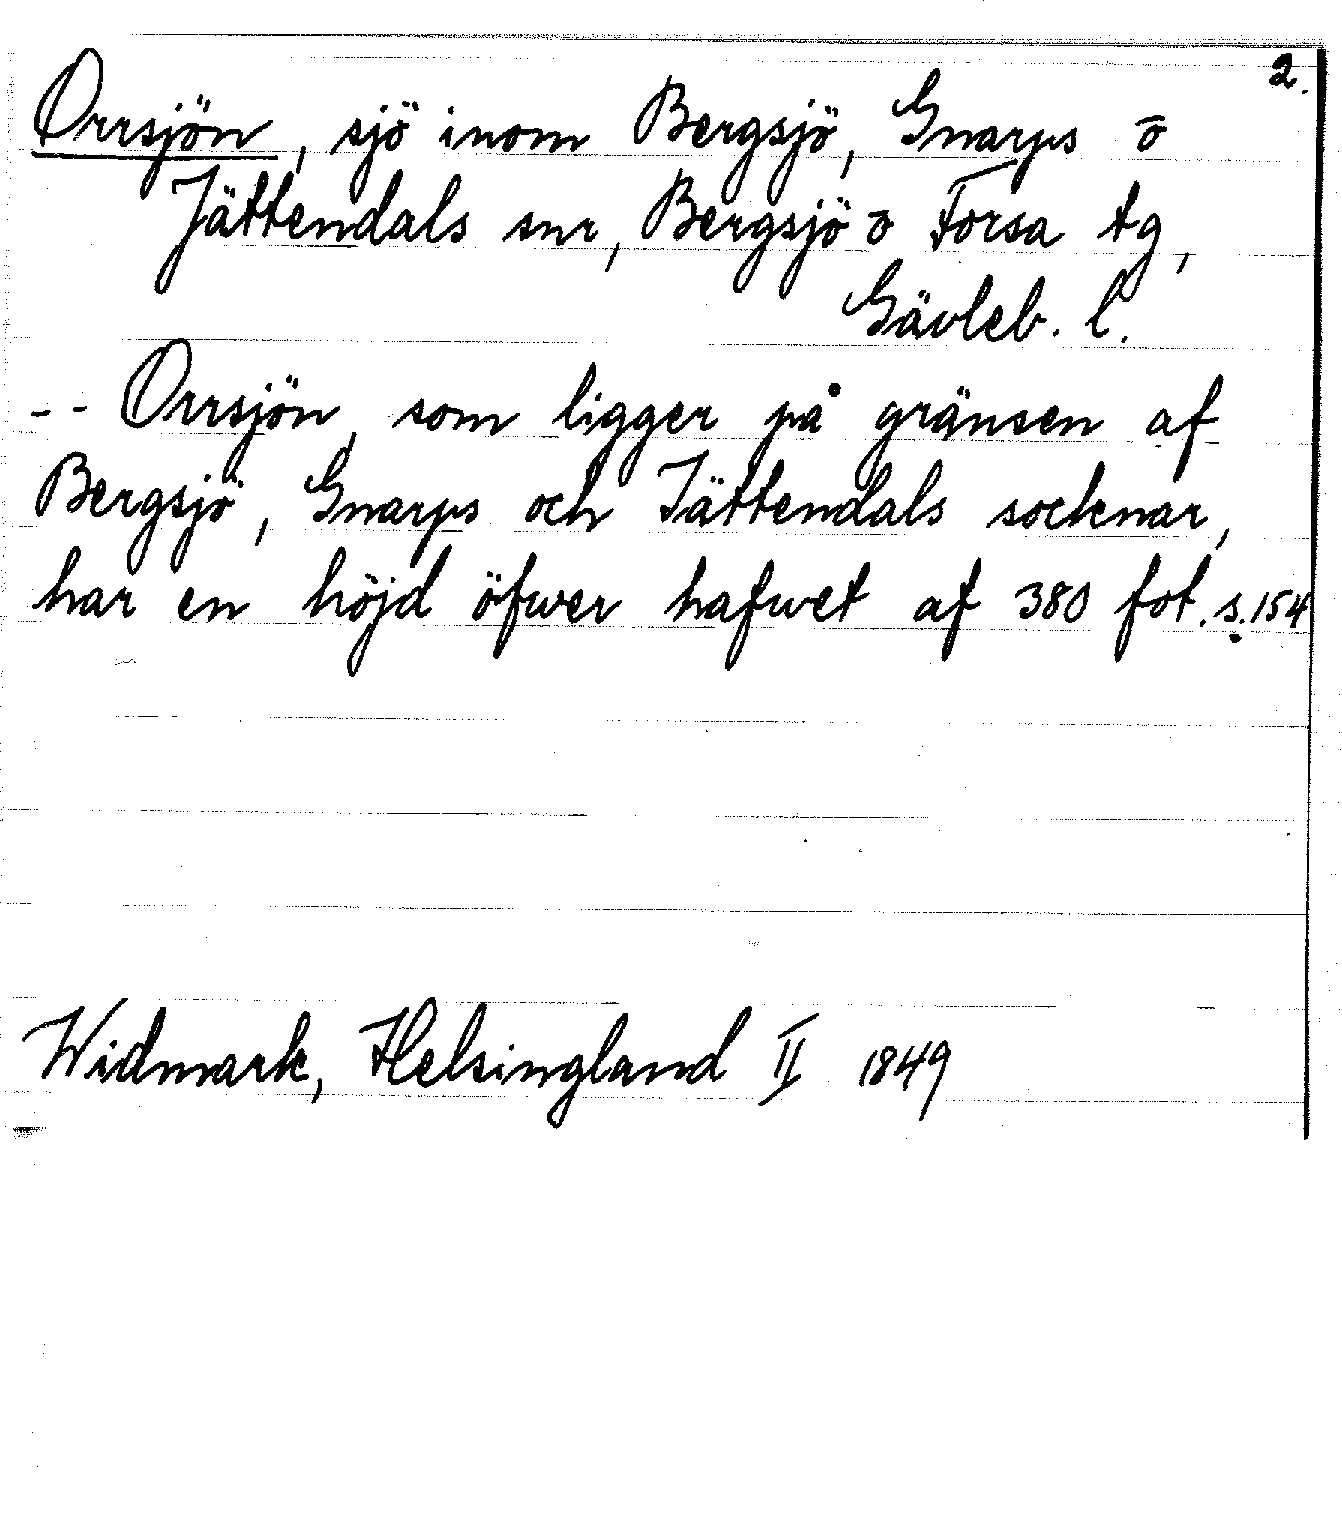 2.
Orrsjön, sjö inom Bergsjö, Gnarps o
Jättendals snr, Bergsjö o Forsa tg,
Gävleb. l.
-- Orrsjön, som ligger på gränsen af
Bergsjö, Gnarps och Jättendals socknar,
har en höjd öfwer hafwet af 380 fot. s. 154
Widmark, Helsingland II 1849